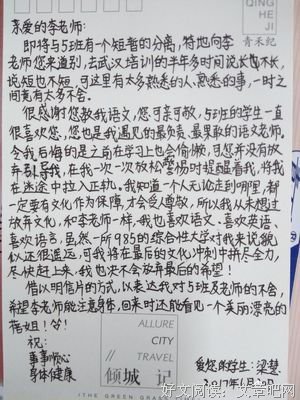 QING
HE
JI
青禾纪
亲爱的李老师:
即将与5班有个短暂的分离,特地向李
老师您来道别,去武汉培训的半年多时间说长也不长,
说短也不短,可这里有太多熟悉的人、熟悉的事,一时之
间竟有太多不舍。
很感谢您教我语文,您可亲可敬,5班的学生一直
很喜欢您,您也是我遇见的最负责、最果敢的语文老师。
令我后悔的是之前在学习上也会偷懒,可您并没有放
弃我,在我一次一次放松警惕时提醒着我,将我
在迷途中拉入正轨。我知道一个人无论走到哪里,都
一定要有文化作为保障,才会受人尊敬,所以我从未想过
放弃文化,和李老师一样,我也喜欢语文、喜欢英语、
喜欢语言,虽然一所985的综合性大学对我来说貌
似还很遥远,可我将在最后的文化冲刺中拼尽全力,
尽快赶上来,我也决不会放弃最后的希望!
借以明信片的方式,以表达我对5班及老师的不舍,
希望李老师能注意身体,回来时还能看见一个美丽漂亮的
蓓姐!
祝:
事事顺心
身体健康
ALLURE
CITY
//
TRAVEL
倾城 记
爱您的学生:梁慧
2017年6月20日
ITHE GREEN GRA
好文阅读:文章吧网